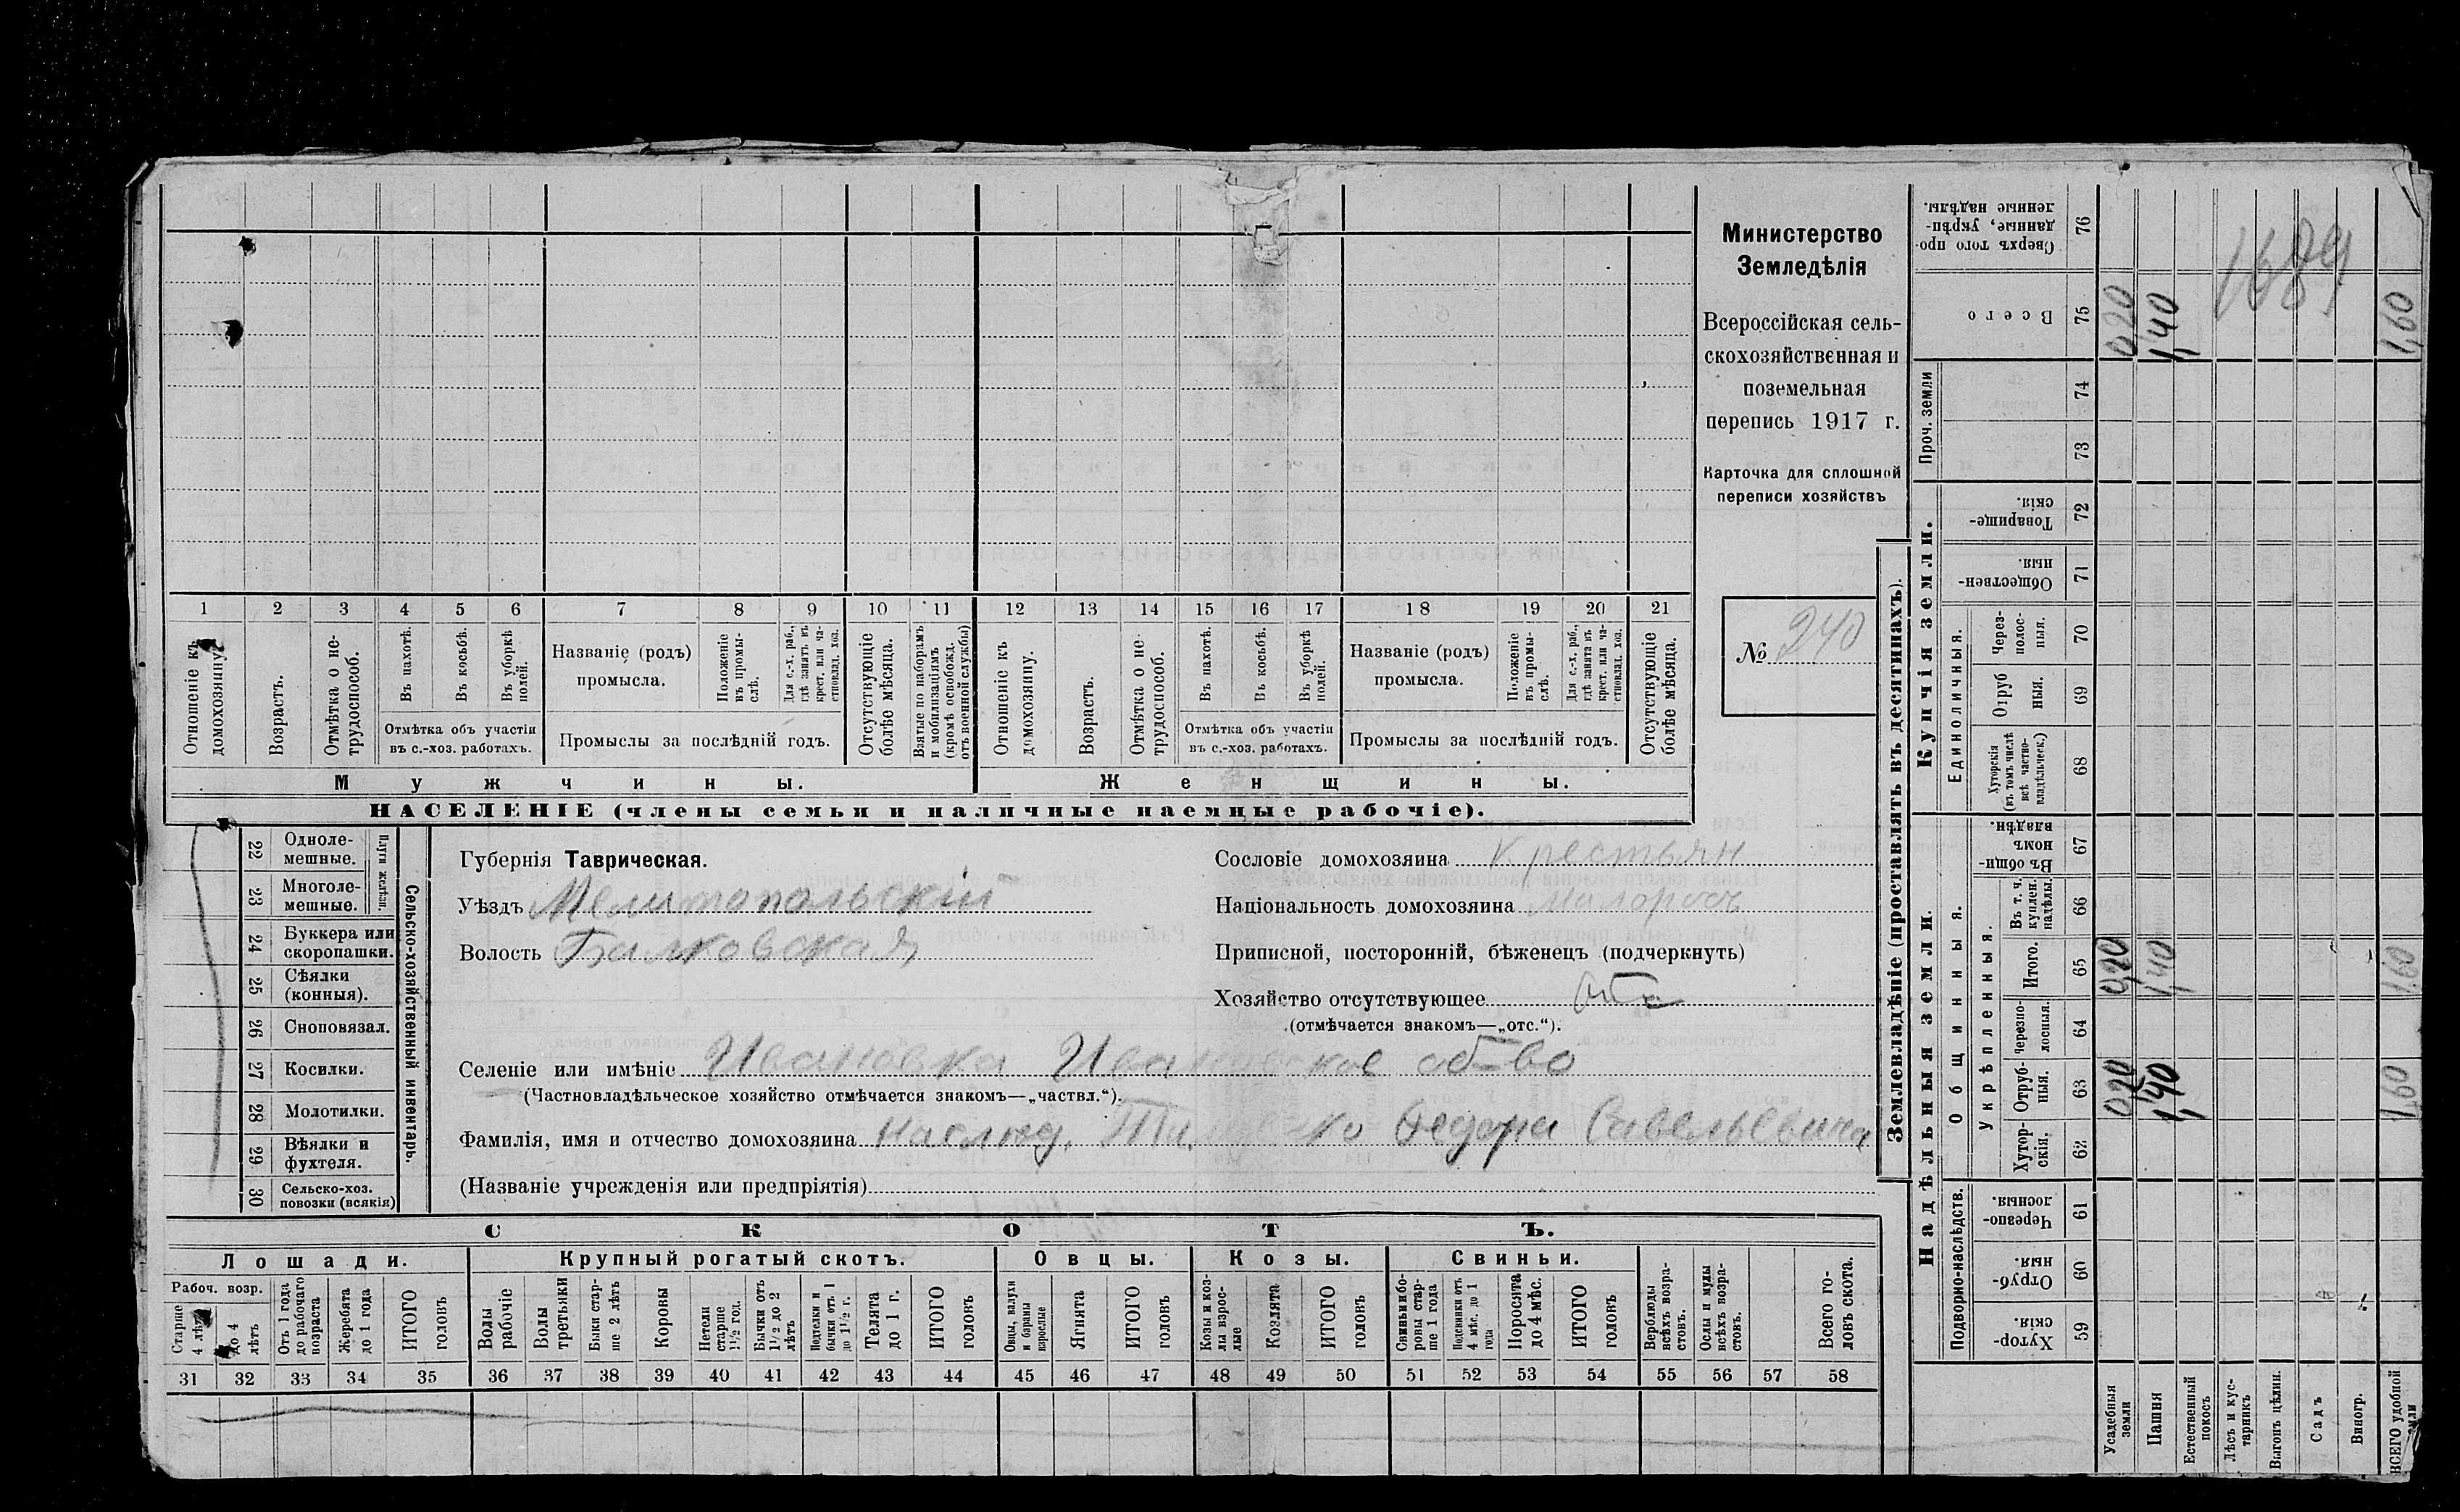 Министерство
Земледѣлія
Всероссійская сель-
скохозяйственная и
поземельная
перепись 1917 г.
Карточка для сплошной
переписи хозяйствъ
№ 240
1 2 3 4 5 6 7 8 9 10 11 12 13 14 15 16 17 18 19 20 21
Отношеніе къ домохозяину.
Возрастъ.
Отмѣтка о не-трудоспособ.
Въ пахотѣ.
Въ косьбѣ.
Въ уборкѣ полей.
Отмѣтка объ участіи
въ с.-хоз. работахъ.
Названіе (родъ)
промысла.
Положеніе въ промы-слѣ.
Для с.-х. раб., гдѣ занятъ въ крест. или ча-стновлад. хоз.
Промыслы за послѣдній годъ.
Отсутствующіе болѣе мѣсяца.
Взятые по наборамъ и мобилизаціямъ (кромѣ освобожд. отъ военной службы)
Отношеніе къ домохозяину.
Возрастъ.
Отмѣтка о не-трудоспособ.
Въ пахотѣ.
Въ косьбѣ.
Въ уборкѣ полей.
Отмѣтка объ участіи
въ с.-хоз. работахъ.
Названіе (родъ)
промысла.
Положеніе въ промы-слѣ.
Для с.-х. раб., гдѣ занята въ крест. или ча-стновлад. хоз.
Промыслы за послѣдній годъ.
Отсутствующіе болѣе мѣсяца.
Мужчины.
Женщины.
НАСЕЛЕНІЕ (члены семьи и наличные наемные рабочіе).
22 Одноле-мешные.
23 Многоле-мешные.
Плуги желѣзн.
24 Буккера или скоропашки.
25 Сѣялки (конныя).
26 Сноповязал.
27 Косилки.
28 Молотилки.
29 Вѣялки и фухтеля.
30 Сельско-хоз. повозки (всякія)
Сельско-хозяйственный инвентарь.
Губернія Таврическая.
Уѣздъ Мелитопольскій
Волость Балковская
Сословіе домохозяина Крестьян
Національность домохозяина Малоросъ
Приписной, посторонній, бѣженецъ (подчеркнуть)
Хозяйство отсутствующее отс
(отмѣчается знакомъ—„отс.“).
Селеніе или имѣніе Ивановка Ивановское об-во
(Частновладѣльческое хозяйство отмѣчается знакомъ—„частвл.“).
Фамилія, имя и отчество домохозяина Наслѣд. Федора Савельевича
(Названіе учрежденія или предпріятія)
СКОТЪ.
Лошади.
Крупный рогатый скотъ.
Овцы.
Козы.
Свиньи.
Рабоч. возр.
Старше 4 лѣтъ
до 4 лѣтъ
Отъ 1 года до рабочаго возраста
Жеребята до 1 года
ИТОГО головъ
Волы рабочіе
Волы третьяки
Быки стар-ше 2 лѣтъ
Коровы
Нетели старше 1½ год.
Бычки отъ 1½ до 2 лѣтъ
Подтелки и бычки отъ 1 до 1½ г.
Телята до 1 г.
ИТОГО головъ
Овцы, валухи и бараны взрослые
Ягнята
ИТОГО головъ
Козы и коз-лы взрос-лые
Козлята
ИТОГО головъ
Свиньи и бо-ровы стар-ше 1 года
Подсвинки отъ 4 мѣс. до 1 года
Поросята до 4 мѣс.
ИТОГО головъ
Верблюды всѣхъ возра-стовъ.
Ослы и мулы всѣхъ возра-стовъ.
Всего го-ловъ скота.
31 32 33 34 35 36 37 38 39 40 41 42 43 44 45 46 47 48 49 50 51 52 53 54 55 56 57 58
Землевладѣніе (проставлять въ десятинахъ).
Надѣльныя земли.
Купчія земли.
Проч. земли
Подворно-наслѣдств.
Общинныя.
Укрѣпленныя.
Единоличныя.
Сверхъ того про-данные, укрѣп-ленные надѣлы. 76
Всего 75 0,20 1,40 1,60
1689
74
73
Товарище-скія. 72
Обществен-ныя. 71
Через-полос-ныя. 70
Отруб-ныя. 69
Хуторскія (въ томъ числѣ всѣ частно-владѣльческ.) 68
Въ общин-номъ владѣн. 67
Въ т. ч. куплен. надѣлы. 66
Итого. 65 0,20 1,40 1,60
Черезпо-лосныя. 64
Отруб-ныя. 63 0,20 1,40 1,60
Хутор-скія. 62
Черезпо-лосныя. 61
Отруб-ныя. 60
Хутор-скія. 59
Усадебныя земли
Пашня
Естественный покосъ
Лѣсъ и кус-тарникъ
Выгонъ цѣлин.
Садъ
Виногр.
ВСЕГО удобной земли